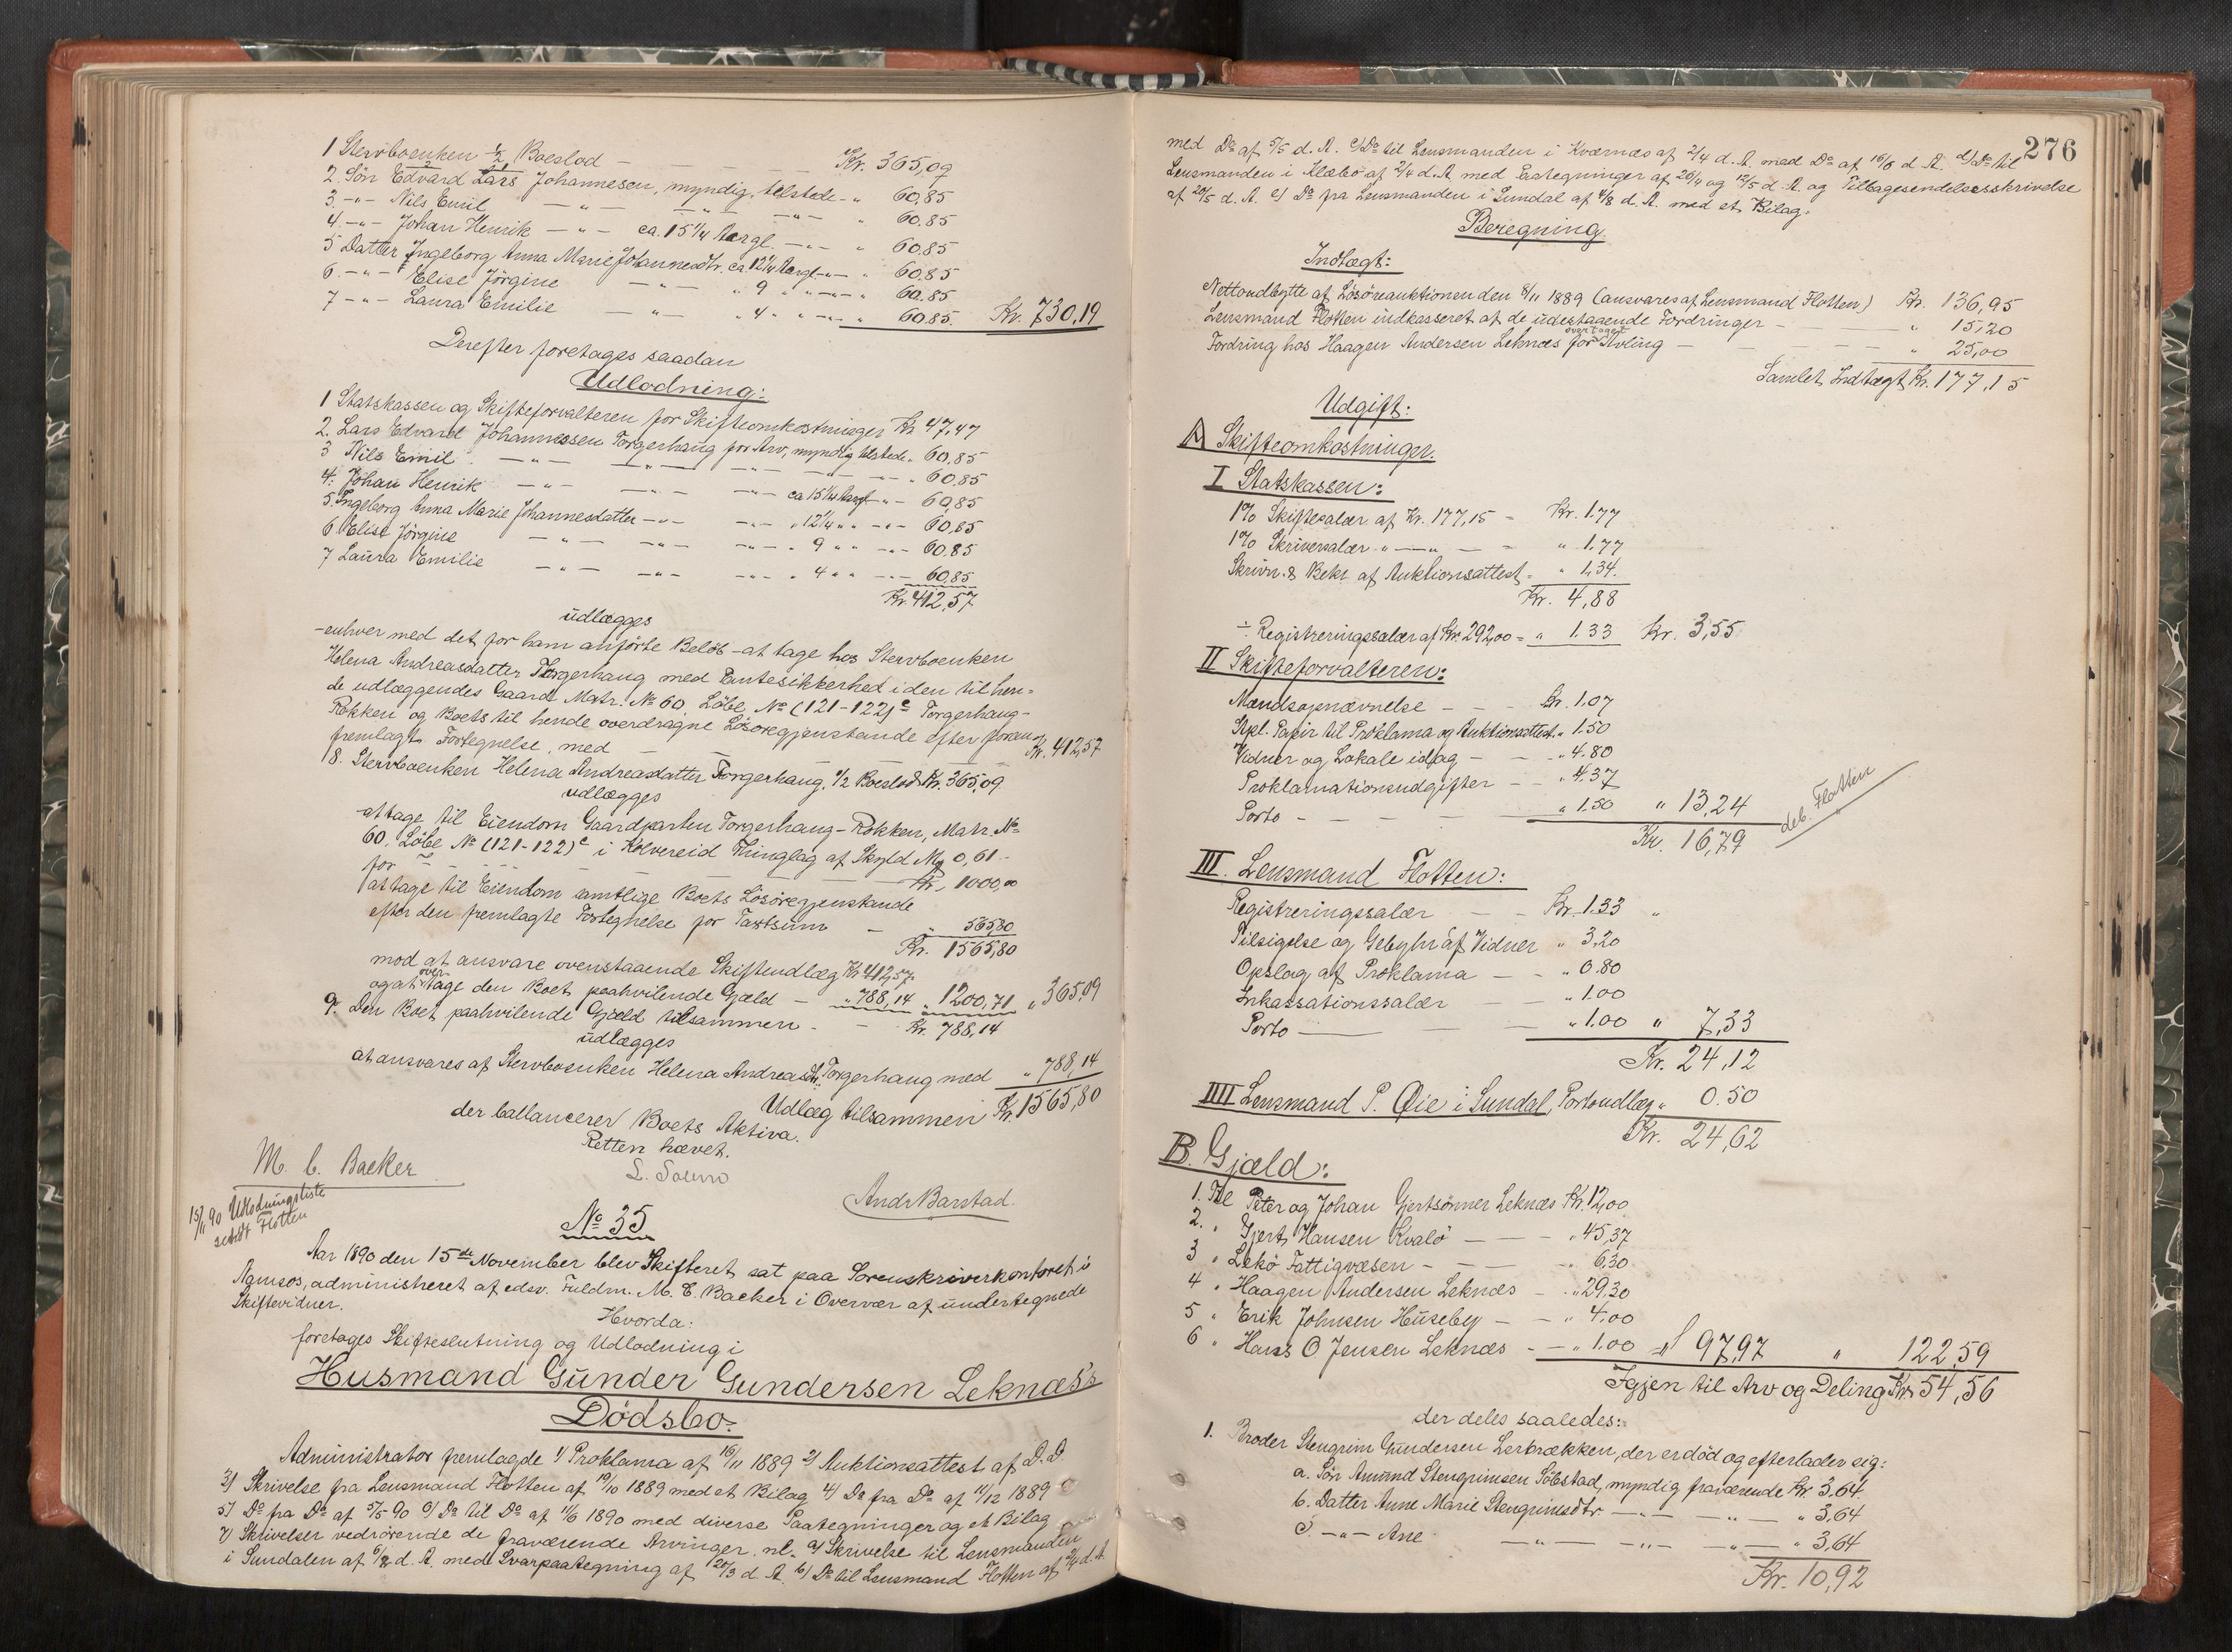 1 Stervboenken 1/2 Boeslod - Kr. 365,09
2. Sön Edvard Lars Johannesen, myndig, tilstede - " 60,85
3. -"- Nils Emil -"- -"- -"- " 60,85
4. -"- Johan Henrik -"- ca. 15 1/4 Aar gl. -"- " 60,85
5 Datter Ingeborg Anna Marie Johannesdtr. ca. 12 1/4 Aar gl. -"- " 60,85
6. -"- Elise Jörgine -"- " 9 " " -"- " 60,85
7 -"- Laura Emilie -"- " 4 " " -"- " 60,85. Kr. 730,19
Derefter foretages saadan
Udlodning:
1 Statskassen og Skifteforvalteren for Skifteomkostninger Kr 47,47
2. Lars Edvard Johannessen Torgerhaug for Arv, myndig tilstede " 60,85
3 Nils Emil -"- -"- -"- -"- " 60,85
4. Johan Henrik -"- -"- -"- ca 15 1/4 Aar gl -"- 60,85
5. Ingeborg Anna Marie Johannesdatter -"- -"- " 12 1/4 " " -"- 60,85
6 Elise Jörgine -"- -"- -"- " 9 " " -"- 60,85
7 Laura Emilie -"- -"- -"- " 4 " " -"- 60,85
Kr. 412,57
udlægges
-enhver med det for ham anförte Belöb - at tage hos Stervboenken
Helena Andreasdatter Torgerhaug med Pantesikkerhed i den til hen-
de udlæggendes Gaard Matr. No 60, Löbe No (121-122)c Torgerhaug-
Rökken og Boets til hende overdragne Lösöregjenstande efter foran
fremlagt Fortegnelse, med - - - Kr. 412,57
8. Stervboenken Helena Andreasdatter Torgerhaug, 1/2 Boeslod Kr. 365,09
udlægges
at tage til Eiendom Gaardparten Torgerhaug-Rökken, Matr. No
60, Löbe No (121-122)c i Kolvereid Thinglag af Skyld Mk 0,61 -
for - - - Kr. 1000,00
at tage til Eiendom samtlige Boets Lösöregjenstande
efter den fremlagte Fortegnelse for Taxtsum - " 565,80
Kr. 1565,80
mod at ansvare ovenstaaende Skifteudlæg Kr 412,57
og at overtage den Boet paahvilende Gjæld - " 788,14 " 1200,71 " 365,09
9. Den Boet paahvilende Gjæld tilsammen - - Kr. 788,14
udlægges
at ansvares af Stervboenken Helena Andreasdtr. Torgerhaug med " 788,14
Udlæg tilsammen Kr. 1565,80
der ballancerer Boets Aktiva.
Retten hævet.
M. C. Backer
Andr Barstad.
15/11 90 Udlodningsliste
sendt Flotten
No 35
Aar 1890 den 15de November blev Skifteret sat paa Sorenskriverkontoret i
Namsos, administreret af edsv. Fuldm. M. C. Backer i Overvær af undertegnede
Skiftevidner.
Hvorda:
foretages Skifteslutning og Udlodning i
Husmand Gunder Gundersen Leknæs's
Dödsbo.
Administrator fremlagde 1) Proklama af 16/11 1889 2) Auktionsattest af D.D.
3) Skrivelse fra Lensmand Flotten af 19/10 1889 med et Bilag 4) Do fra Do af 11/12 1889
5) Do fra Do af 5/5 90 6) Do til Do af 11/6 1890 med diverse Paategninger og et Bilag
7) Skrivelser vedrörende de fraværende Arvinger. nl. a) Skrivelse til Lensmanden
i Sundalen af 6/2 d. A. med Svarpaategning af 20/3 d. A. b) Do til Lensmand Flotten af 2/4 d. A.
276
med Do af 5/5 d. A. c) Do til Lensmanden i Kværnæs af 2/4 d. A. med Do af 16/5 d. A. d) Do til
Lensmanden i Klæbö af 2/4 d. A. med Paategninger af 26/4 og 12/5 d. A. og Tilbagesendelsesskrivelse
af 20/5 d. A. e) Do fra Lensmanden i Sundal af 4/8 d. A. med et Bilag.
Beregning
Indtægt:
Nettoudbytte af Lösöreauktionen den 8/11 1889 (ansvares af Lensmand Flotten) Kr. 136,95
Lensmand Flotten indkasseret af de udestaaende Fordringer - " 15,20
Fordring hos Haagen Andersen Leknæs for overtaget Avling - - - " 25,00
Samlet Indtægt Kr. 177,15
Udgift:
A Skifteomkostninger.
I Statskassen:
1% Skiftesalær af Kr. 177,15 - Kr. 1.77
1% Skriversalær " -"- - " 1.77
Skrivn. & Bekr. af Auktionsattest - " 1,34.
Kr. 4,88
÷ Registreringssalær af Kr. 292,00 = " 1.33 Kr. 3,55
II Skifteforvalteren:
Mandsopnævnelse - - - Kr. 1.07
Stpl. Papir til Proklama og Auktionsattest " 1.50
Vidner og Lokale idag - - - " 4.80
Proklamationsudgifter - - " 4.37
Porto - - - - " 1.50 " 13,24
Kr. 16,79
deb. Flotten
III. Lensmand Flotten:
Registreringssalær - - Kr. 1.33 "
Tilsigelse og Gebyhr af Vidner " 3,20
Opslag af Proklama - - " 0.80
Inkassationssalær - - " 1.00
Porto - - " 1.00 " 7,33
Kr. 24,12
IIII Lensmand P. Øie i Sundal, Portoudlæg " 0.50
Kr. 24,62
B. Gjæld:
1. Til Peter og Johan Gjertsönner Leknæs Kr. 12,00
2. " Gjert Hansen Kvalö - - - " 45,37
3 " Lekö Fattigvæsen - - - " 6,30
4 " Haagen Andersen Leknæs - " 29,30
5 " Erik Johnsen Huseby - - " 4,00
6 " Hans O Jensen Leknæs - - " 1.00 " 97,97 " 122,59
Igjen til Arv og Deling Kr. 54,56
der deles saaledes:
1. Broder Stengrim Gundersen Lerbrækken, der er död og efterlader sig:
a. Sön Amund Stengrimsen Söbstad, myndig fraværende Kr 3,64
b. Datter Anne Marie Stengrimsdtr. -"- -"- " 3,64
c. -"- Ane -"- -"- -"- " 3,64
Kr. 10,92